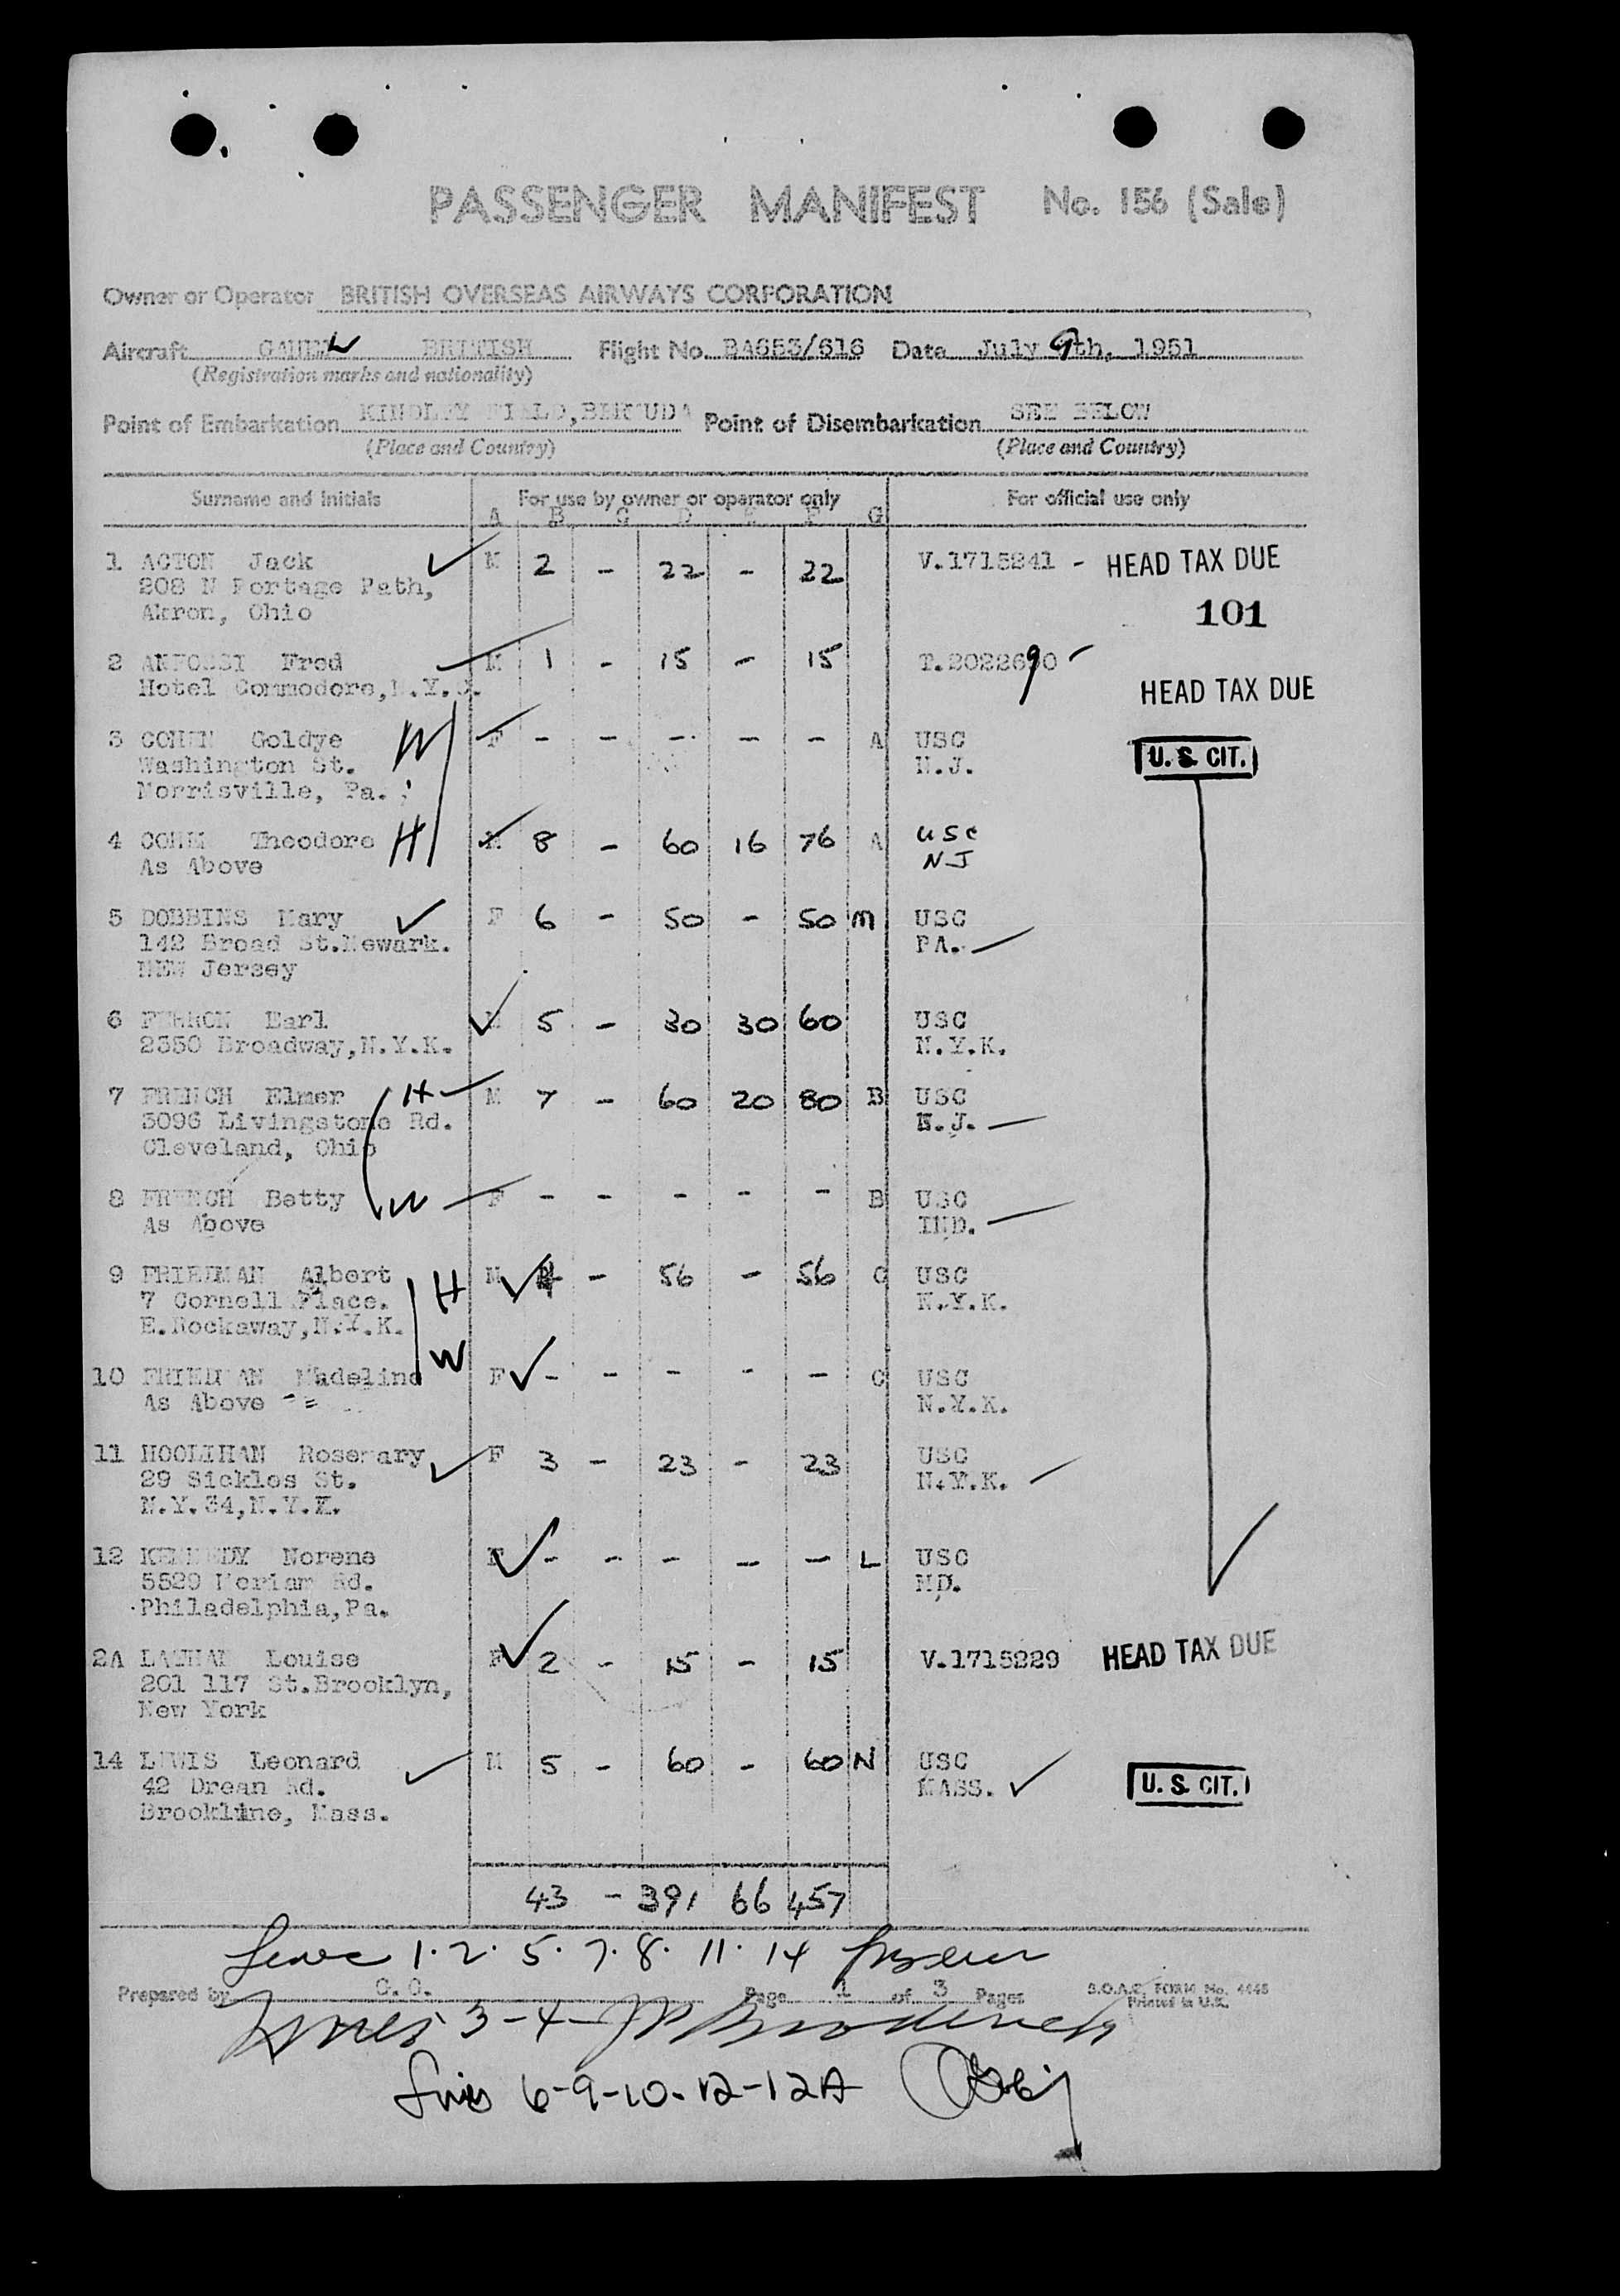 PASSENGER MANIFEST No. 156 (Sale)
Owner or Operator BRITISH OVERSEAS AIRWAYS CORPORATION
Aircraft BRITISH Flight No. BA653/616 Date July 9th, 1951
(Registration marks and nationality)
Point of Embarkation KINDLEY FIELD, BERMUDA Point of Disembarkation SEE BELOW
(Place and Country) (Place and Country)
Surname and Initials For use by owner or operator only For official use only
A B C D E F G
1 ACTON Jack M 2 - 22 - 22 V.1715241 - HEAD TAX DUE
208 N Portage Path,
Akron, Ohio 101
2 Fred M 1 - 15 - 15 T.2022690
Hotel Commodore, N.Y.C. HEAD TAX DUE
3 COHEN Goldye W F - - - - - A USC
Washington St. N.J. U.S. CIT.
Morrisville, Pa.
4 COHEN Theodore H M 8 - 60 16 76 A USC
As Above NJ
5 DOBBINS Mary F 6 - 50 - 50 M USC
142 Broad St.Newark. PA.
NEW Jersey
6 Earl M 5 - 30 30 60 USC
2350 Broadway,N.Y.K. N.Y.K.
7 FRENCH Elmer H M 7 - 60 20 80 B USC
3096 Livingstone Rd. N.J.
Cleveland, Ohio
8 FRENCH Betty W F - - - - - B USC
As Above IND.
9 FRIEDMAN Albert H M 4 - 56 - 56 C USC
7 Cornell Place. N.Y.K.
E.Rockaway,N.Y.K.
10 FRIEDMAN Madeline W F - - - - - C USC
As Above N.Y.K.
11 HOOLIHAN Rosemary F 3 - 23 - 23 USC
29 Sickles St. N.Y.K.
N.Y.34,N.Y.K.
12 KENNEDY Norene F - - - - - L USC
5529 Rd. MD.
Philadelphia,Pa.
2A Louise F 2 - 15 - 15 V.1715229 HEAD TAX DUE
201 117 St.Brooklyn,
New York
14 LEWIS Leonard M 5 - 60 - 60 N USC
42 Drean Rd. MASS. U.S. CIT.
Brookline, Mass.
43 - 391 66 457
1. 2. 5. 7. 8. 11. 14
Prepared by C.C. Page 1 of 3 Pages B.O.A.C. FORM No. 4448
Printed in U.K.
Lines 3-4
Lines 6-9-10-12-12A